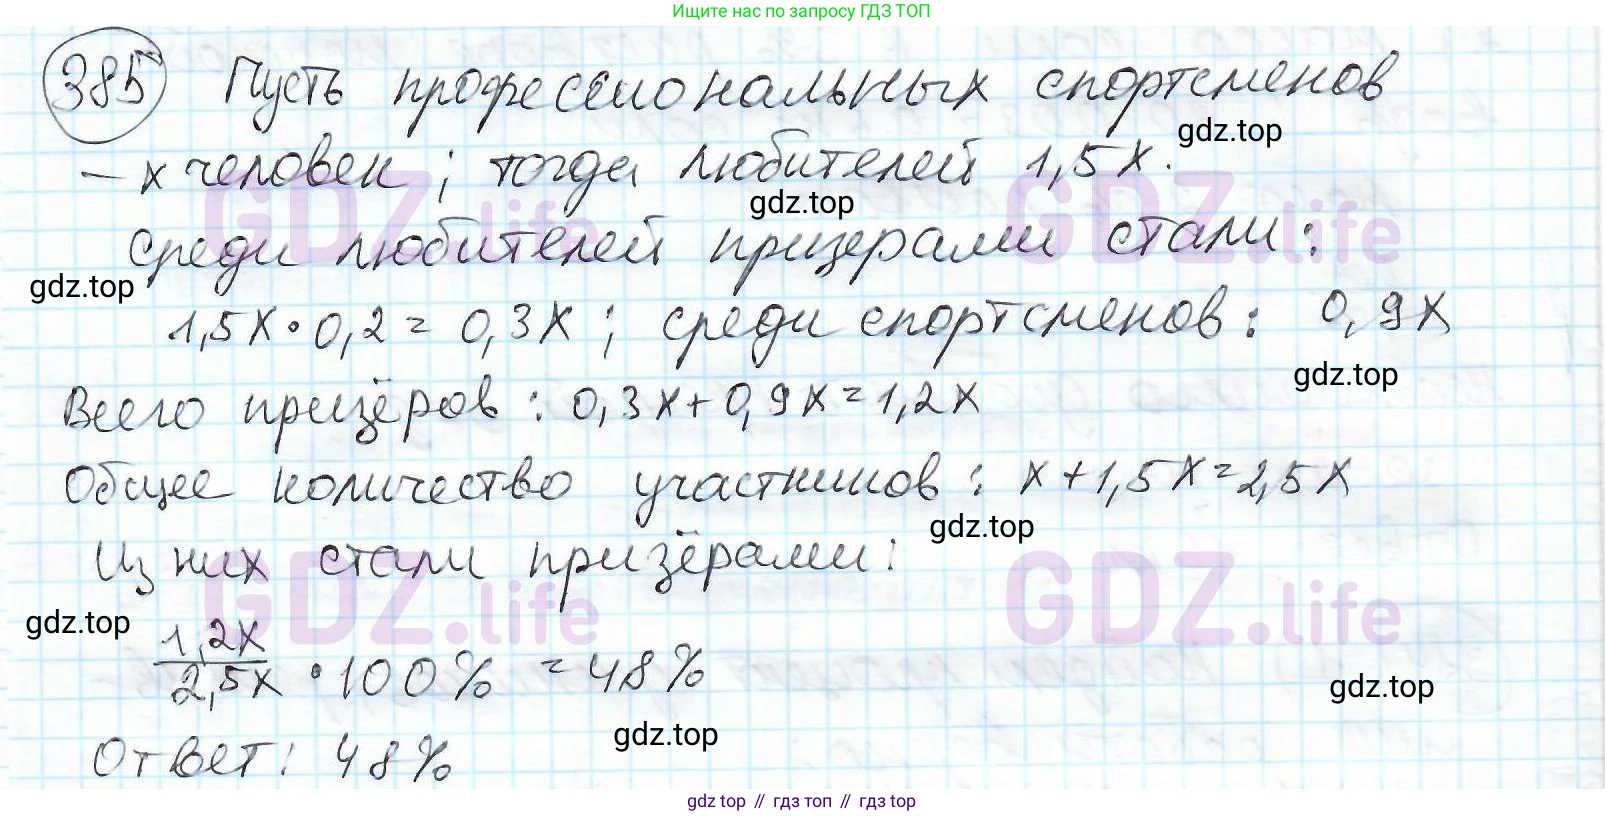 Ищите нас по запросу ГДЗ ТОП
385 Пусть профессиональных спортсменов
gdz.top
— x человек; тогда любителей 1,5x.
gdz.top
Среди любителей призерами стали:
gdz.top
1,5x · 0,2 = 0,3x; среди спортсменов: 0,9x
gdz.top
Всего призёров: 0,3x + 0,9x = 1,2x
Общее количество участников: x + 1,5x = 2,5x
gdz.top
Из них стали призёрами:
GDZ.life
GDZ.life
GDZ.life
GDZ.life
gdz.top
1,2x/2,5x · 100% = 48%
gdz.top
gdz.top
Ответ: 48%
gdz top // гдз топ // gdz top